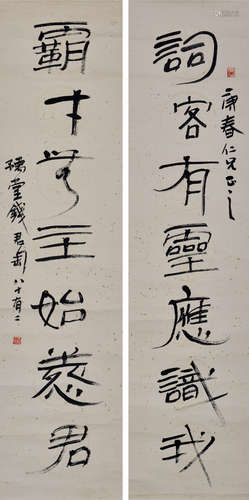 詞客有靈應識我
庚春仁兄正之
霸才无主始慈君
豫堂錢君匋八十有二